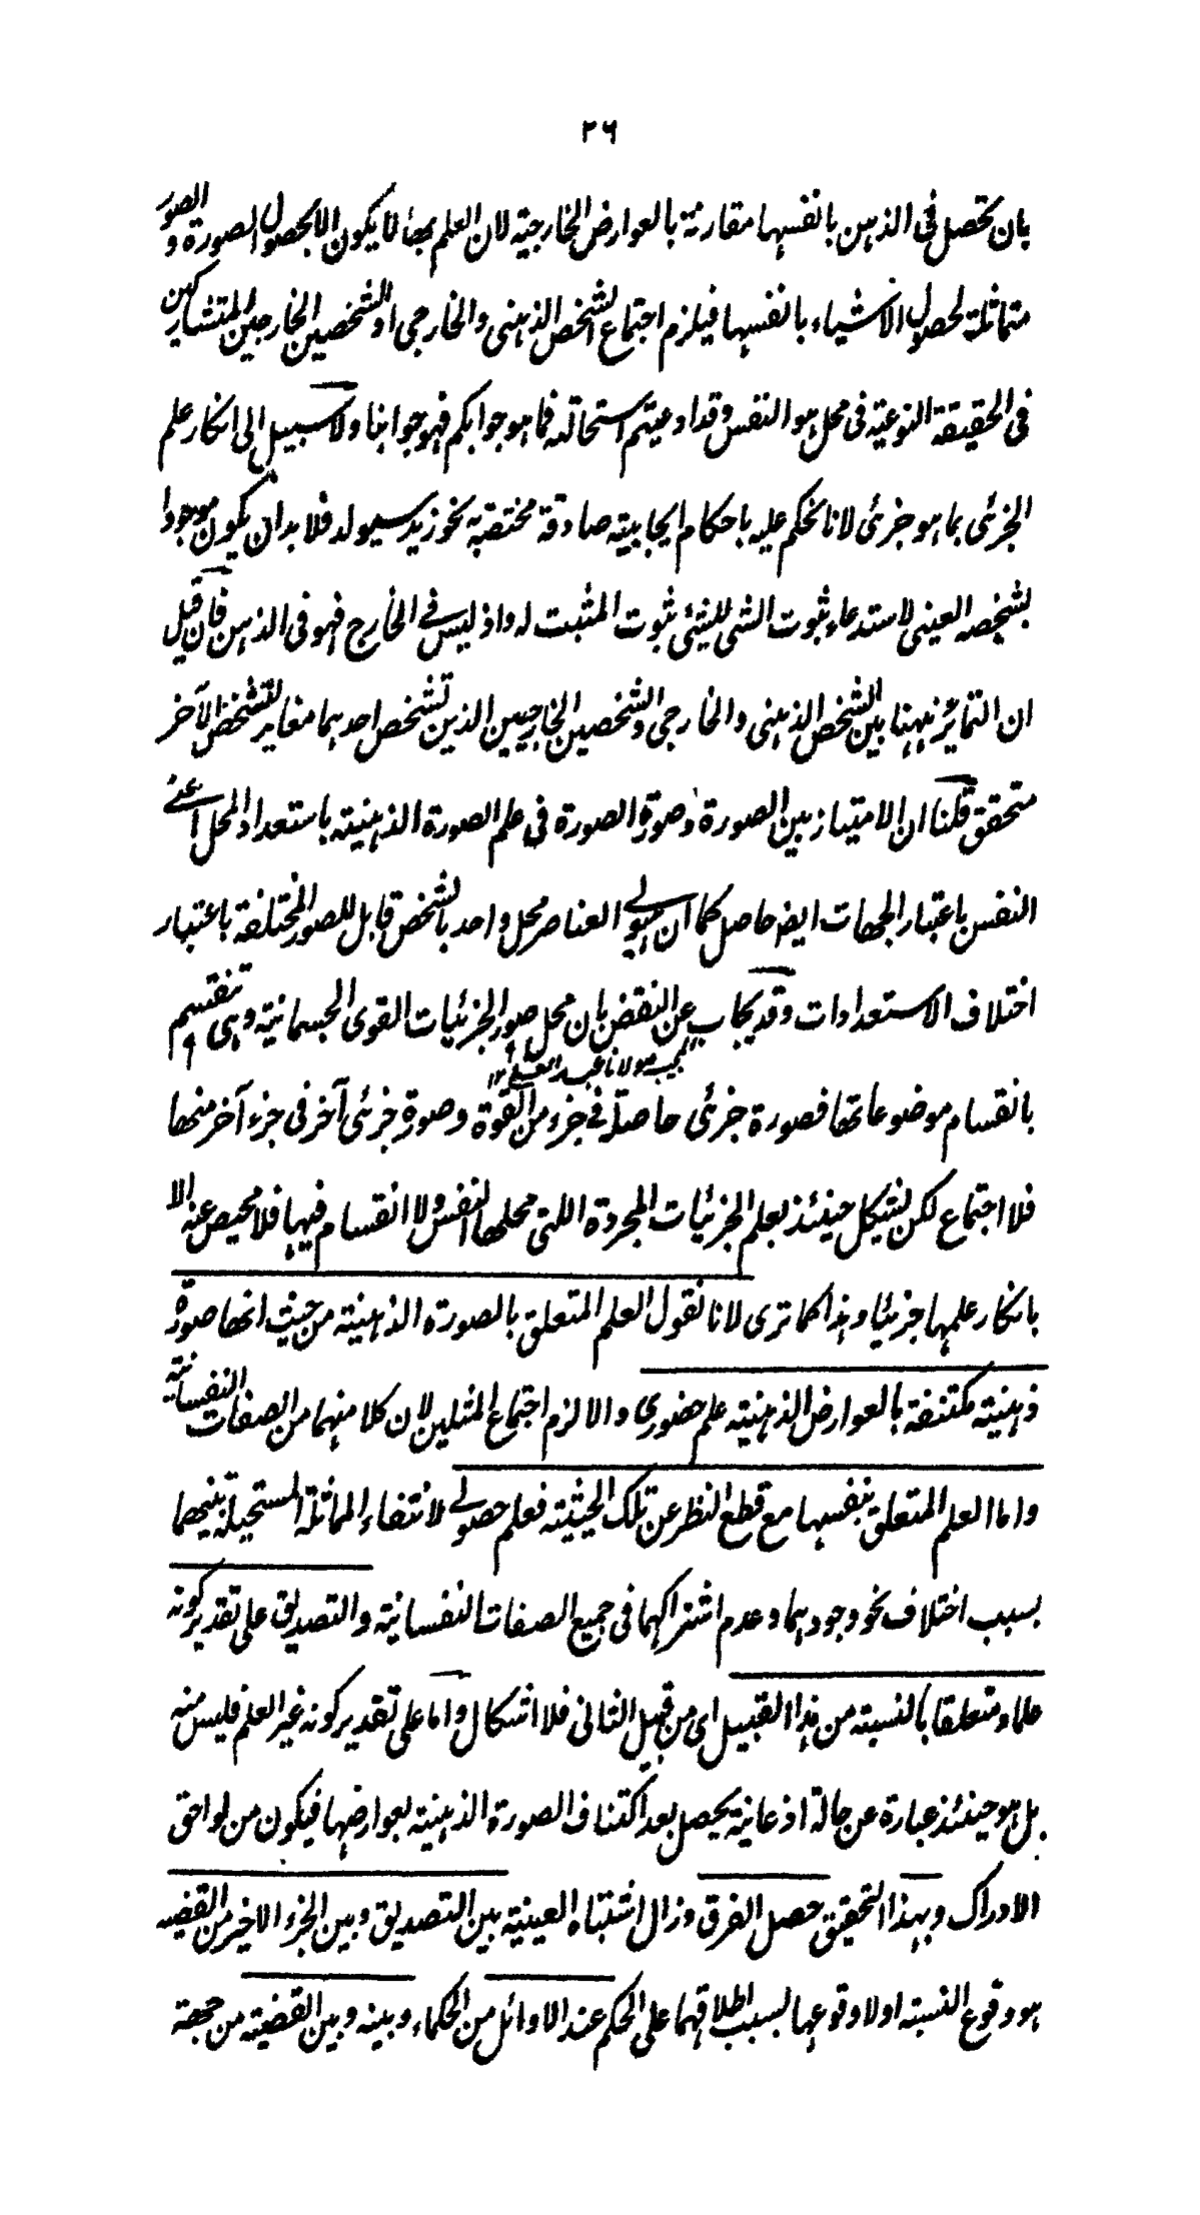 ٢٦
بان تحصل فى الذهن بانفسها مقارنة بالعوارض الخارجية لان العلم بها لا يكون الا بحصول الصورة و الصور
متماثلة لحصول الاشياء بانفسها فيلزم اجتماع الشخص الذهنى والخارجى او الشخصين الخارجين المتشاركين
فى الحقيقة النوعية فى محل هو النفس وقد ادعيتم استحالته فما هو جوابكم فهو جوابنا ولا سبيل الى انكار علم
الجزئى بما هو جزئى لانا نحكم عليه باحكام ايجابية صادقة مختصة به نحو زيد سيولد فلا بد ان يكون موجودا
بشخصه العينى لاستدعاء ثبوت الشى للشئى ثبوت المثبت له واذ ليس فى الخارج فهو فى الذهن فان قيل
ان التمايز ههنا بين الشخص الذهنى والخارجى والشخصين الخارجيين الذين تشخص احدهما مغاير لتشخص الآخر
متحقق قلنا ان الامتياز بين الصورة وصورة الصورة فى علم الصورة الذهنية باستعداد المحل اعنى
النفس باعتبار الجهات ايضا حاصل كما ان هيولى العناصر محل واحد بالشخص قابل للصور المختلفة باعتبار
اختلاف الاستعدادات وقد يجاب عن النقض بان محل صور الجزئيات القوى الجسمانية وهى تنقسم
المجيب مولانا عبد العلى ١٢
بانقسام موضوعاتها فصورة جزئى حاصلة فى جزء من القوة وصورة جزئى آخر فى جزء آخر منها
فلا اجتماع لكن يشكل حينئذ بعلم الجزئيات المجردة اللتى محلها النفس ولا انقسام فيها فلا محيص عنه الا
بانكار علمها جزئيا وهذا كما ترى لانا نقول العلم المتعلق بالصورة الذهنية من حيث انها صورة
ذهنية مكتنفة بالعوارض الذهنية علم حضورى والا لزم اجتماع المثلين لان كلا منهما من الصفات النفسانية
واما العلم المتعلق بنفسها مع قطع النظر عن تلك الحيثية فعلم حصولى لانتفاء المماثلة المستحيلة بينهما
بسبب اختلاف نحو وجودهما وعدم اشتراكهما فى جميع الصفات النفسانية والتصديق على تقدير كونه
علما ومتعلقا بالنسبة من هذا القبيل اى من قبيل الثانى فلا اشكال واما على تقدير كونه غير العلم فليس منه
بل هو حينئذ عبارة عن حالة اذعانية يحصل بعد اكتناف الصورة الذهنية بعوارضها فيكون من لواحق
الادراك وبهذا التحقيق حصل الفرق وزال اشتباه العينية بين التصديق وبين الجزء الاخير من القضية
هو وقوع النسبة اولا وقوعها بسبب اطلاقهما على الحكم عند الاوائل من الحكماء وبينه وبين القضية من جهة